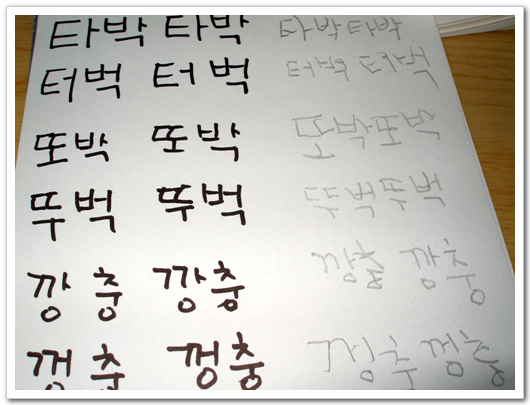 타박 타박 타박타박
터벅 터벅 터벅 터벅
또박 또박 또박또박
뚜벅 뚜벅 뚜벅뚜벅
깡충 깡충 깡충 깡충
껑충 껑충 껑충 껑충